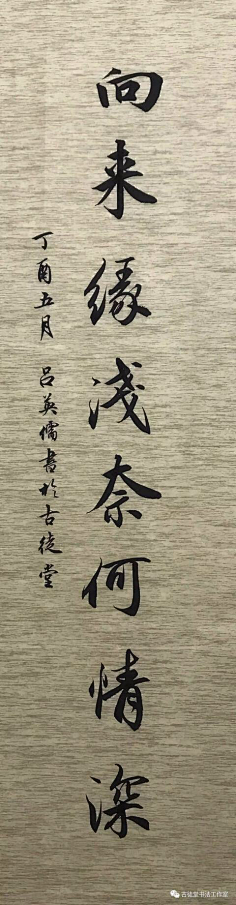 向来缘浅奈何情深
丁酉五月 吕英儒书于古徒堂
古徒堂书法工作室